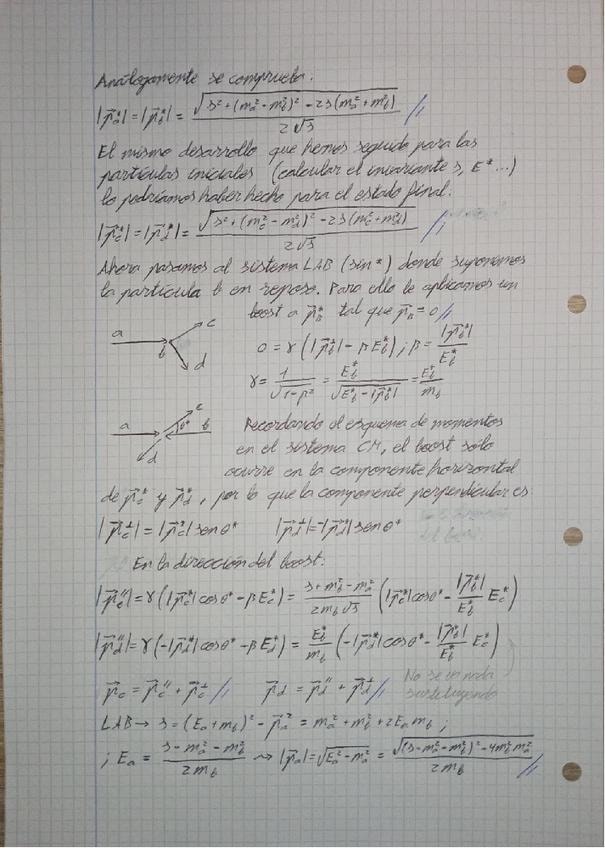 Análogamente se comprueba:
|p⃗a*| = |p⃗b*| = √(s² + (ma² - mb²)² - 2s(ma² + mb²)) / 2√s //
El mismo desarrollo que hemos seguido para las
partículas iniciales (calcular el invariante s, E*...)
lo podríamos haber hecho para el estado final:
|p⃗c*| = |p⃗d*| = √(s² + (mc² - md²)² - 2s(mc² + md²)) / 2√s //
Ahora pasamos al sistema LAB (sin *) donde suponemos
la partícula b en reposo. Para ello le aplicamos un
boost a p⃗B* tal que p⃗B = 0 //
a b c d
0 = γ(|p⃗b*| - βEb*) ; β = |p⃗b*| / Eb*
γ = 1 / √(1 - β²) = Eb* / √(Eb* - |p⃗b*|) = Eb* / mb
a c θ* b d
Recordando el esquema de momentos
en el sistema CM, el boost sólo
ocurre en la componente horizontal
de p⃗c* y p⃗d*, por lo que la componente perpendicular es:
|p⃗c⊥| = |p⃗c*| sen θ* |p⃗d⊥| = -|p⃗d*| sen θ*
En la dirección del boost:
|p⃗c''| = γ(|p⃗c*| cos θ* - βEc*) = (s + mb² - ma²) / (2mb√s) (|p⃗c*| cos θ* - |p⃗b*| / Eb* Ec*)
|p⃗d''| = γ(-|p⃗d*| cos θ* - βEd*) = Eb* / mb (-|p⃗d*| cos θ* - |p⃗b*| / Eb* Ec*)
p⃗c = p⃗c'' + p⃗c⊥ // p⃗d = p⃗d'' + p⃗d⊥ //
No se va nada
sustituyendo
LAB → s = (Ea + mb)² - p⃗a² = ma² + mb² + 2Ea mb ;
; Ea = (s - ma² - mb²) / 2mb ⇝ |p⃗a| = √(Ea² - ma²) = √((s - ma² - mb²)² - 4mb² ma²) / 2mb //